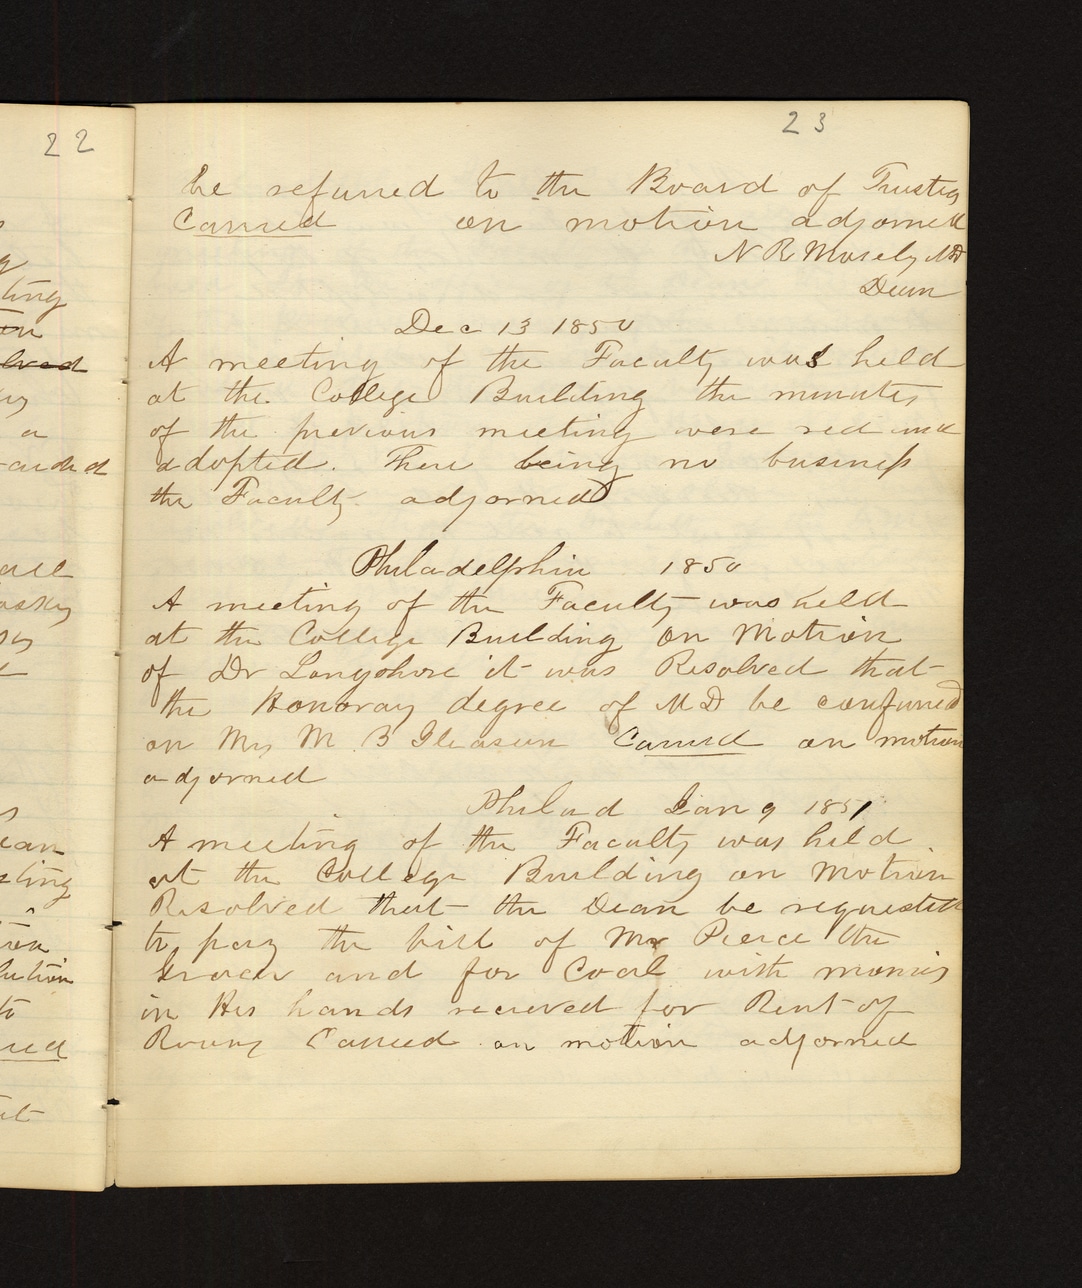 22
23
be refurred to the Board of Trustees
Carried on motion adjorned
N R Mosely MD
Dean
Dec 13 1850
A meeting of the Faculty was held
at the College Building the minutes
of the previous meeting were red and
adopted. There being no business
the Faculty adjorned
Philadelphia 1850
A meeting of the Faculty was held
at the College Building on Motion
of Dr Longshore it was Resolved that
the Honoray degree of MD be confured
on Mrs M B Gleason Carried on motion
adjorned
Philad Jan 9 1851
A meeting of the Faculty was held
at the College Building on Motion
Resolved that the Dean be requested
to pay the bill of Mr Pierce the
Grocer and for Coal with monies
in His hands recieved for Rent of
Rooms Carried on motion adjorned